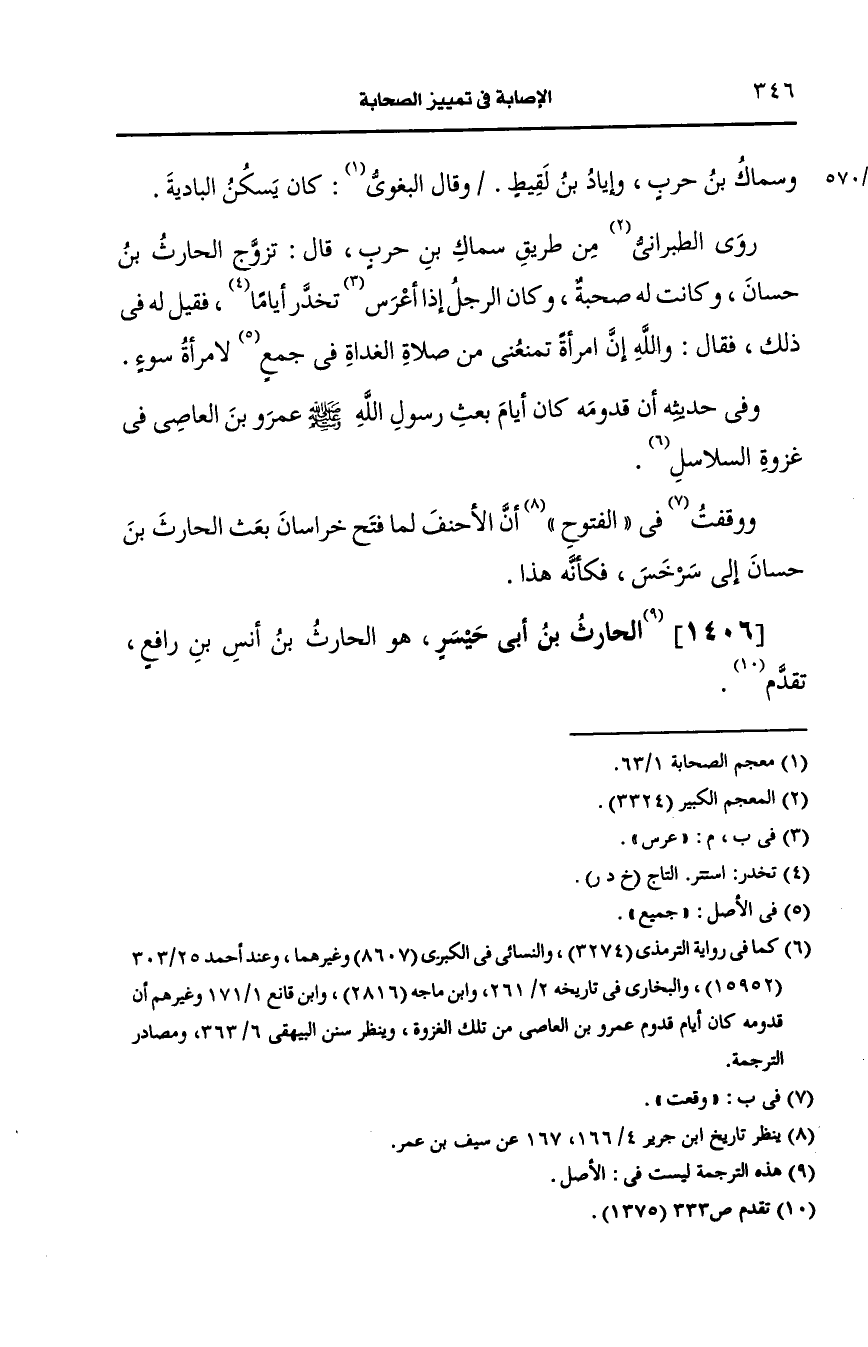 ٣٤٦ الإصابة فى تمييز الصحابة
٥٧٠/ وسماكُ بنُ حربٍ ، وإيادُ بنُ لَقِيطٍ . / وقال البغوىُّ(١) : كان يَسكُنُ الباديةَ .
روَى الطبرانىُّ(٢) مِن طريقِ سماكِ بنِ حربٍ ، قال : تزوَّج الحارثُ بنُ
حسانَ ، وكانت له صحبةٌ ، وكان الرجلُ إذا أعْرَس(٣) تخدَّر أيامًا(٤) ، فقيل له فى
ذلك ، فقال : واللَّهِ إنَّ امرأةً تمنعُنى من صلاةِ الغداةِ فى جمعٍ(٥) لامرأةُ سوءٍ .
وفى حديثِه أن قدومَه كان أيامَ بعثِ رسولِ اللَّهِ ﷺ عمرَو بنَ العاصِى فى
غزوةِ السلاسلِ(٦) .
ووقفتُ(٧) فى « الفتوحِ »(٨) أنَّ الأحنفَ لما فتَح خراسانَ بعَث الحارثَ بنَ
حسانَ إلى سَرْخَسَ ، فكأنَّه هذا .
[١٤٠٦] (٩)الحارثُ بنُ أبى حَيْسَرٍ ، هو الحارثُ بنُ أنسِ بنِ رافعٍ ،
تقدَّم(١٠) .
(١) معجم الصحابة ٦٣/١.
(٢) المعجم الكبير (٣٣٢٤) .
(٣) فى ب ، م : « عرس » .
(٤) تخدر: استتر. التاج (خ د ر) .
(٥) فى الأصل : « جميع » .
(٦) كما فى رواية الترمذى (٣٢٧٤) ، والنسائى فى الكبرى (٨٦٠٧) وغيرهما ، وعند أحمد ٣٠٣/٢٥
(١٥٩٥٢) ، والبخارى فى تاريخه ٢/ ٢٦١، وابن ماجه (٢٨١٦) ، وابن قانع ١٧١/١ وغيرهم أن
قدومه كان أيام قدوم عمرو بن العاصى من تلك الغزوة ، وينظر سنن البيهقى ٦/ ٣٦٣، ومصادر
الترجمة.
(٧) فى ب : « وقعت » .
(٨) ينظر تاريخ ابن جرير ٤/ ١٦٦، ١٦٧ عن سيف بن عمر.
(٩) هذه الترجمة ليست فى : الأصل .
(١٠) تقدم ص٣٣٣ (١٣٧٥) .